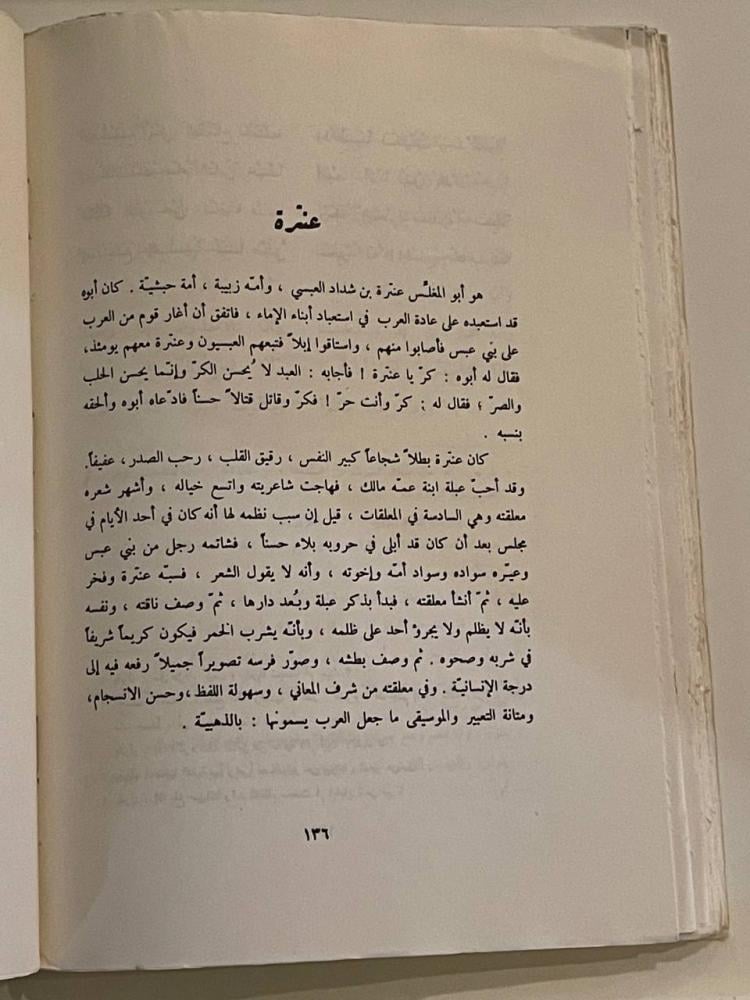 عنترة
هو أبو المغلّس عنترة بن شداد العبسي ، وأمّه زبيبة ، أمة حبشيّة . كان أبوه
قد استعبده على عادة العرب في استعباد أبناء الإماء ، فاتفق أن أغار قوم من العرب
على بني عبس فأصابوا منهم ، واستاقوا إبلاً فتبعهم العبسيون وعنترة معهم يومئذ،
فقال له أبوه : كرّ يا عنترة ! فأجابه : العبد لا يُحسن الكرّ وإنّما يحسن الحلب
والصرّ ؛ فقال له : كرّ وأنت حَرّ ! فكرّ وقاتل قتالاً حسناً فادّعاه أبوه وألحقه
بنسبه .
كان عنترة بطلاً شجاعاً كبير النفس ، رقيق القلب ، رحب الصدر ، عفيفاً.
وقد أحبّ عبلة ابنة عمّه مالك ، فهاجت شاعريته واتسع خياله ، وأشهر شعره
معلقته وهي السادسة في المعلقات ، قيل إن سبب نظمه لها أنه كان في أحد الأيام في
مجلس بعد أن كان قد أبلى في حروبه بلاء حسناً ، فشاتمه رجل من بني عبس
وعيّره سواده وسواد أمّه وإخوته ، وأنه لا يقول الشعر ، فسبّه عنترة وفخر
عليه ، ثمّ أنشأ معلقته ، فبدأ بذكر عبلة وبُعد دارها ، ثمّ وصف ناقته ، ونفسه
بأنّه لا يظلم ولا يجرؤ أحد على ظلمه ، وبأنّه يشرب الخمر فيكون كريماً شريفاً
في شربه وصحوه . ثم وصف بطشه ، وصوّر فرسه تصويراً جميلاً رفعه فيه إلى
درجة الإنسانيّة . وفي معلقته من شرف المعاني ، وسهولة اللفظ ،وحسن الانسجام،
ومتانة التعبير والموسيقى ما جعل العرب يسمونها : بالذهبيّة .
١٣٦